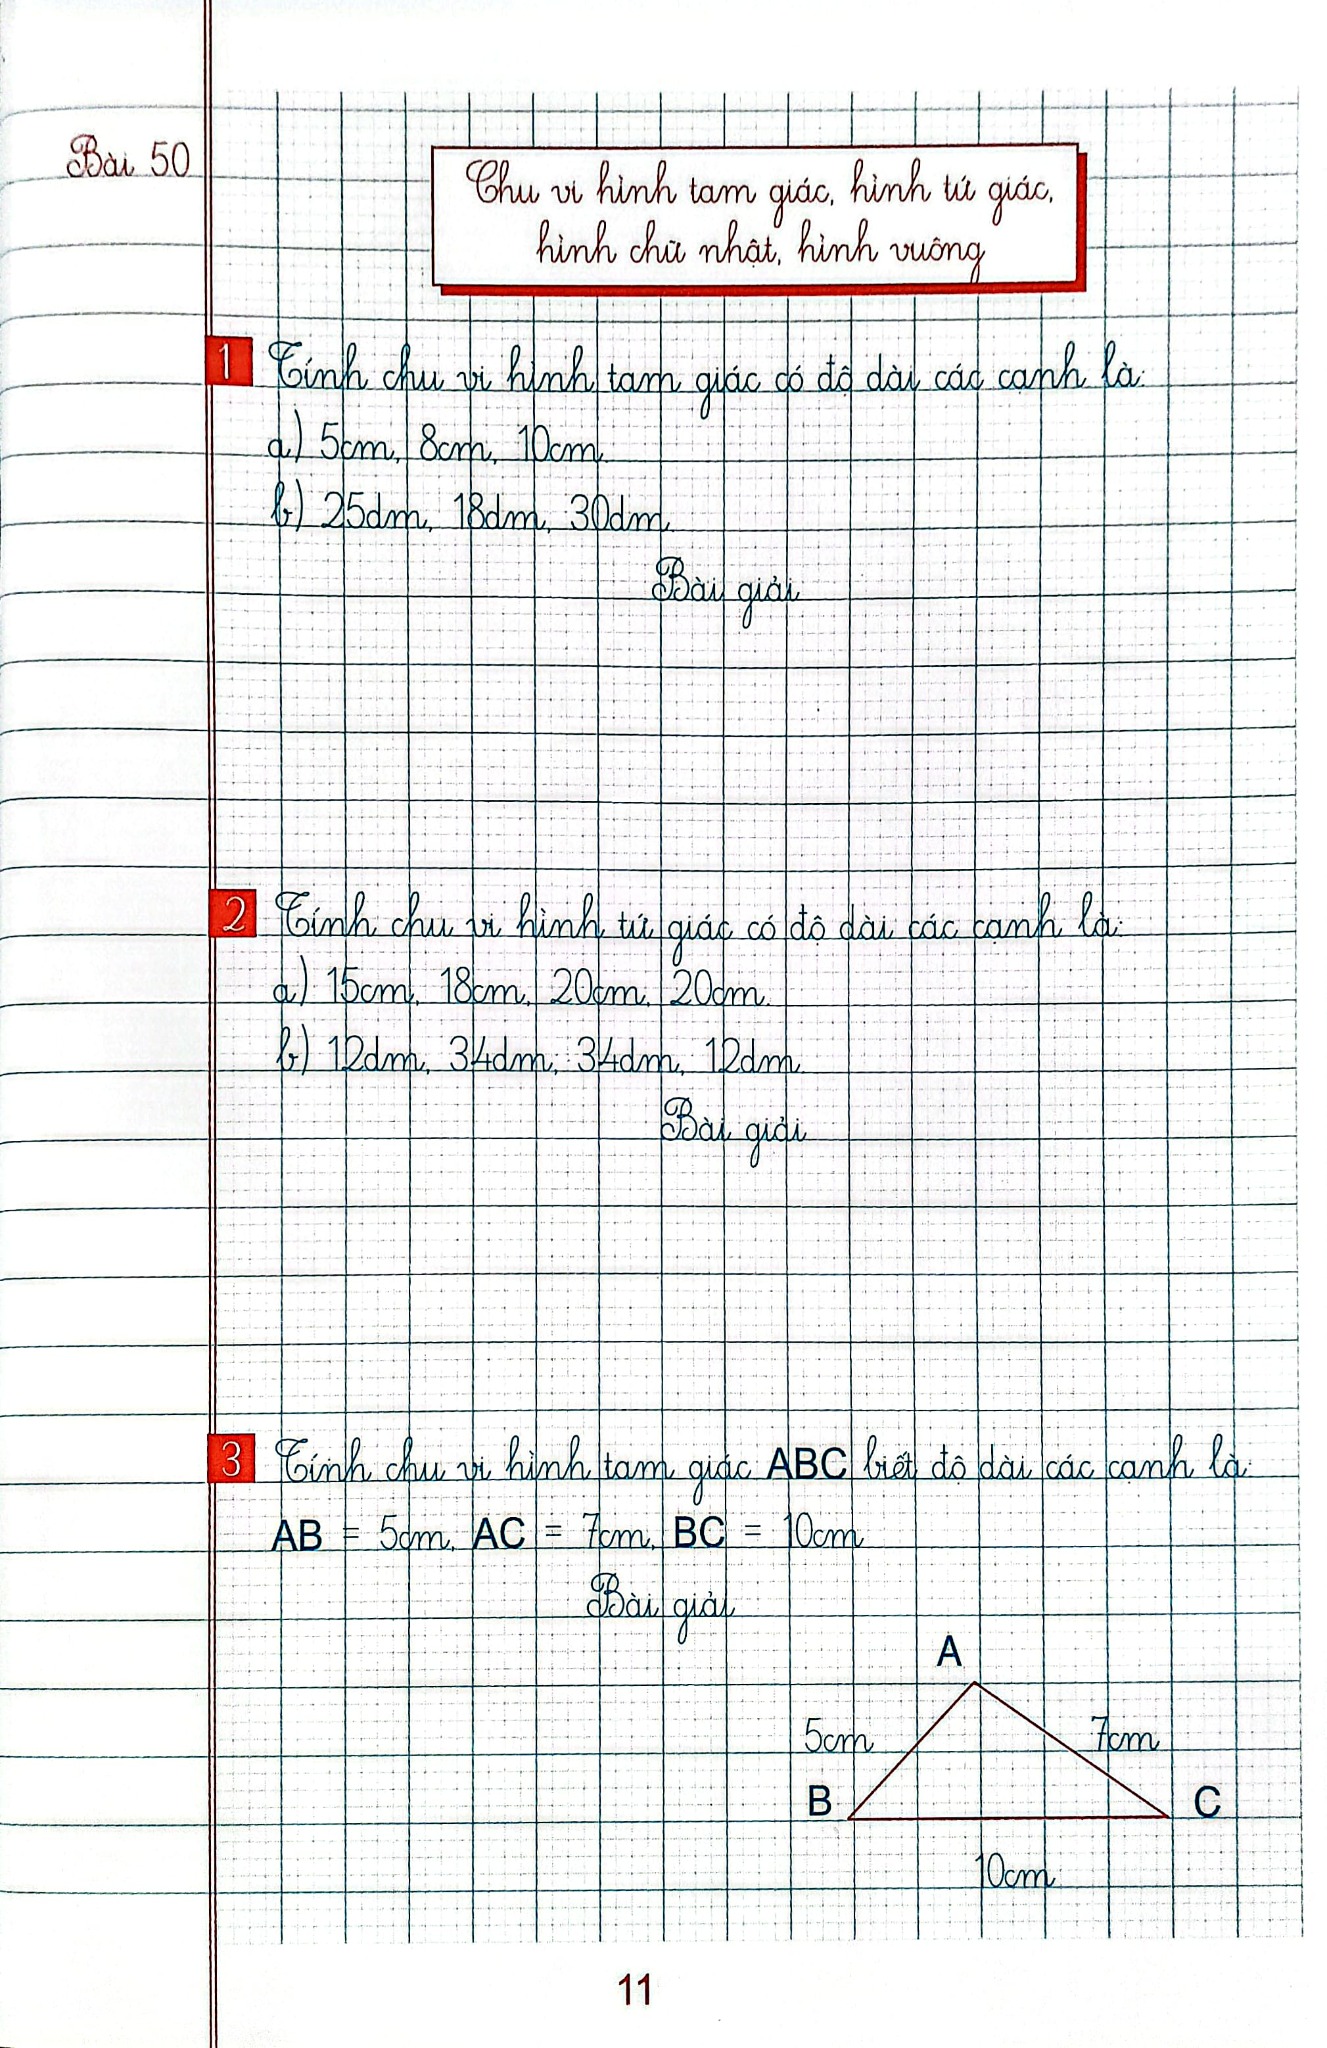 Bài 50
Chu vi hình tam giác, hình tứ giác,
hình chữ nhật, hình vuông
1 Tính chu vi hình tam giác có độ dài các cạnh là:
a) 5cm, 8cm, 10cm.
b) 25dm, 18dm, 30dm.
Bài giải
2 Tính chu vi hình tứ giác có độ dài các cạnh là:
a) 15cm, 18cm, 20cm, 20cm.
b) 12dm, 34dm, 34dm, 12dm.
Bài giải
3 Tính chu vi hình tam giác ABC biết độ dài các cạnh là:
AB = 5cm, AC = 7cm, BC = 10cm
Bài giải
A
5cm 7cm
B C
10cm
11